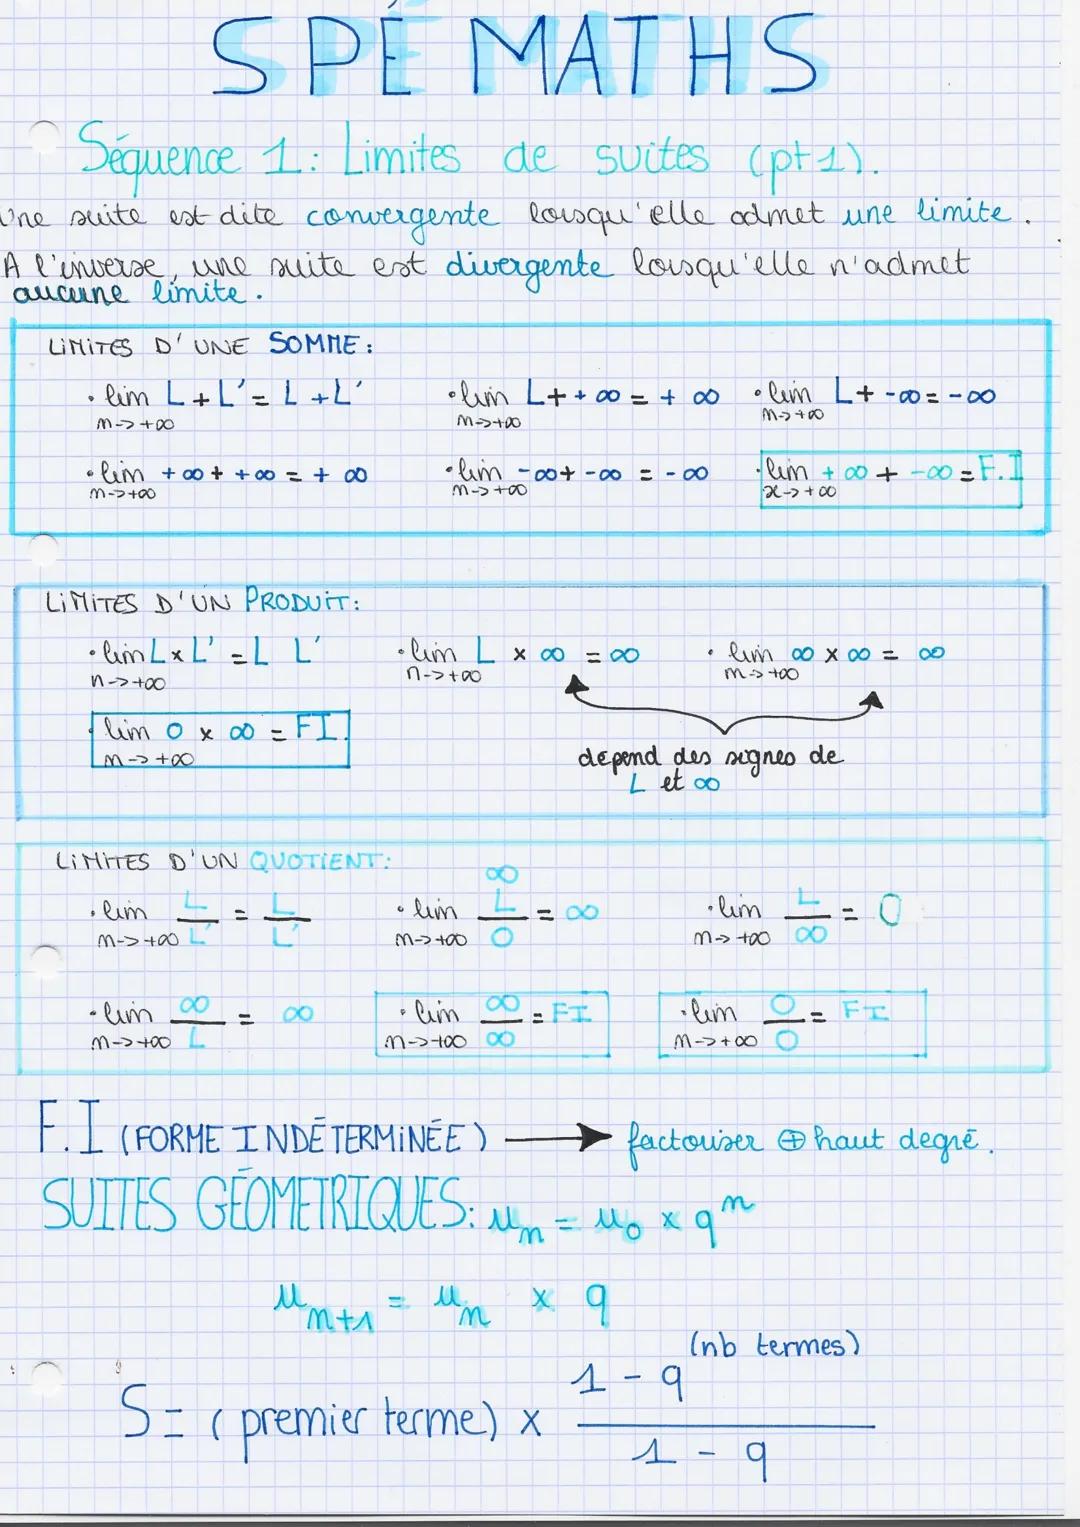 SPÉ MATHS
Séquence 1 : Limites de suites (pt 1).
Une suite est dite convergente lorsqu'elle admet une limite.
A l'inverse, une suite est divergente lorsqu'elle n'admet
aucune limite.
LIMITES D'UNE SOMME :
• lim L + L' = L + L' • lim L + +∞ = +∞ • lim L + -∞ = -∞
n->+∞ n->+∞ n->+∞
• lim +∞ + +∞ = +∞ • lim -∞ + -∞ = -∞ • lim +∞ + -∞ = F.I
n->+∞ n->+∞ x->+∞
LIMITES D'UN PRODUIT :
• lim L x L' = L L' • lim L x ∞ = ∞ • lim ∞ x ∞ = ∞
n->+∞ n->+∞ n->+∞
• lim 0 x ∞ = FI.
n->+∞
dépend des signes de
L et ∞
LIMITES D'UN QUOTIENT :
∞
• lim L/L' = L/L' • lim L/0 = ∞ • lim L/∞ = 0
n->+∞ n->+∞ n->+∞
• lim ∞/L = ∞ • lim ∞/∞ = FI • lim 0/0 = FI
n->+∞ n->+∞ n->+∞
F.I (FORME INDÉTERMINÉE) → factoriser ⊕ haut degré.
SUITES GÉOMETRIQUES : uₙ = u₀ x qⁿ
uₙ₊₁ = uₙ x q
(nb termes)
1 - q
S = (premier terme) x
1 - q